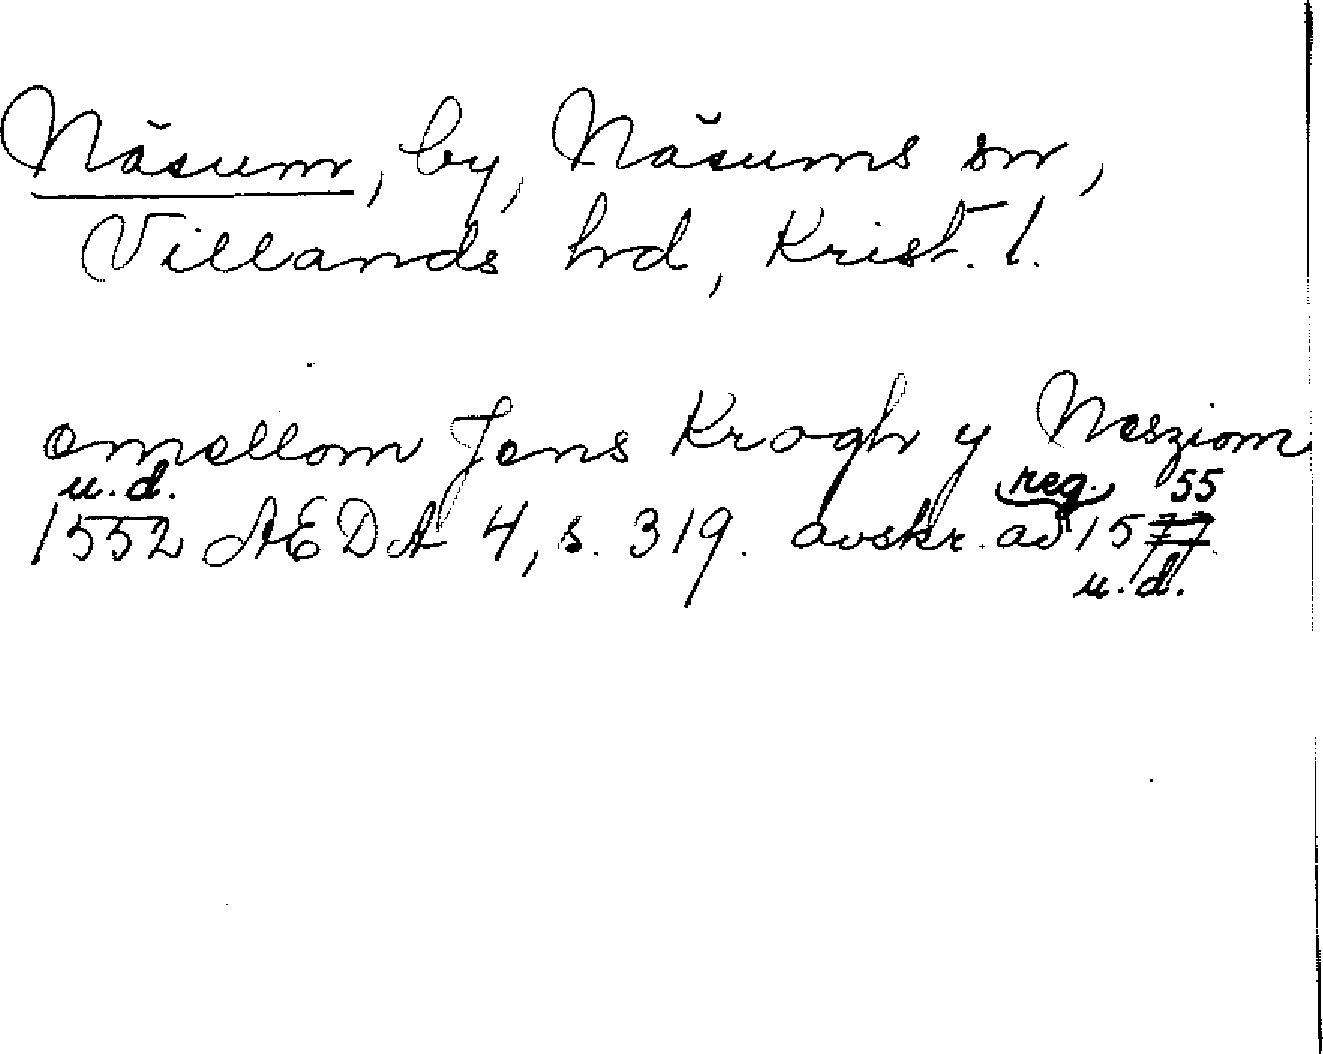 Näsum, by, Näsums sn,
Villands hd, Krist. l.
emellom Jens Kragh y Nesziom
u.d. reg. 55
1552 ÆDA 4, s. 319. avskr. av 1577
u.d.